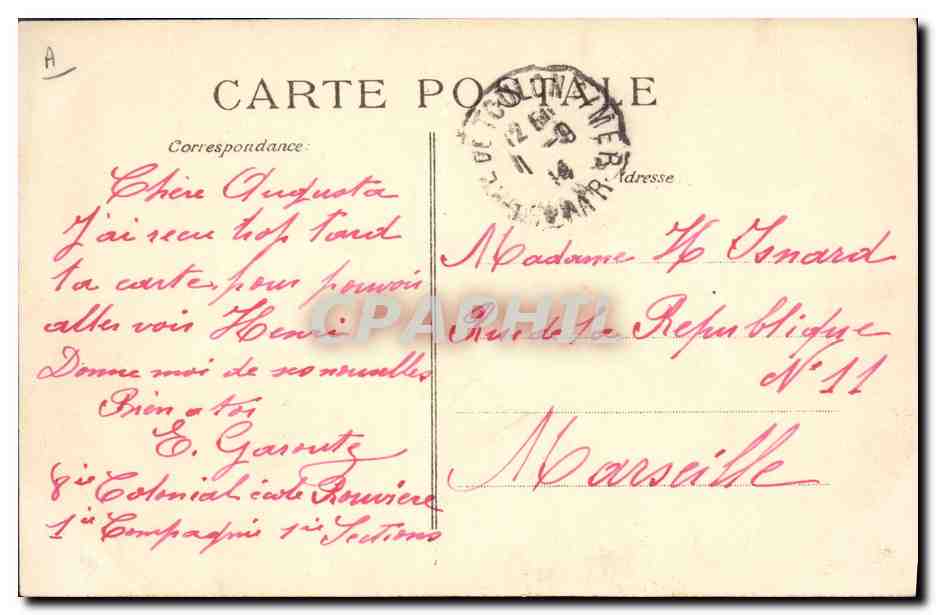 A
CARTE POSTALE
TOULON S/MER
VAR
12
11 -9
14
Correspondance:
Adresse
Chère Augusta
J'ai recu trop tard
ta carte pour pouvoir
aller voir Henri
Donne moi de ses nouvelles
Bien a toi
E. Garoute
8ie Colonial école Rouviere
1ie Compagnie 1ie Sections
Madame H Isnard
Rue de la Republique
N° 11
Marseille
CPAPHIL